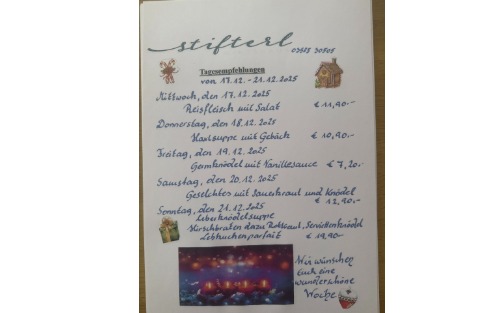 stifterl
Tagesempfehlungen
von 17.12. - 21.12.2025
Mittwoch, den 17.12.2025
Reisfleisch mit Salat € 11,90.-
Donnerstag, den 18.12.2025
Hausuppe mit Gebäck € 10,90.-
Freitag, den 19.12.2025
Germknödel mit Vanillesauce € 7,20.-
Samstag, den 20.12.2025
Geselchtes mit Sauerkraut und Knödel
€ 12,90.-
Sonntag, den 21.12.2025
Leberknödelsuppe
Hirschbraten dazu Rotkraut, Serviettenknödel
Lebkuchenparfait € 19,90.-
Wir wünschen
Euch eine
wunderschöne
Woche